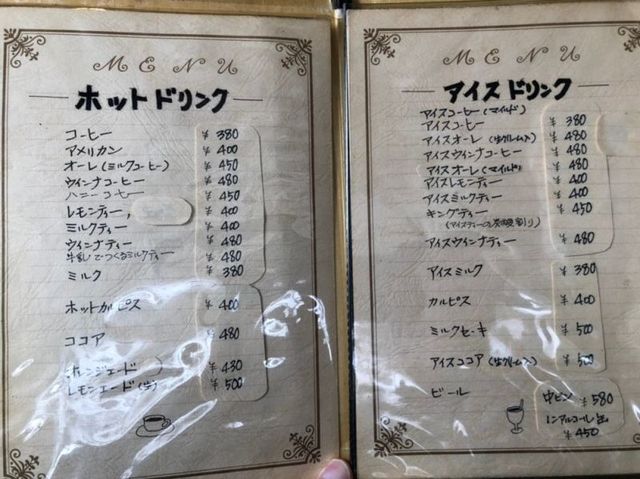 MENU
ホットドリンク
コーヒー ¥380
アメリカン ¥400
オーレ(ミルクコーヒー) ¥450
ウインナコーヒー ¥480
ハニーコーヒー ¥450
レモンティー ¥400
ミルクティー ¥400
ウインナティー ¥480
牛乳でつくるミルクティー ¥480
ミルク ¥380
ホットカルピス ¥400
ココア ¥480
¥430
レモンエード(生) ¥500
MENU
アイスドリンク
アイスコーヒー(マイルド)
アイスコーヒー ¥380
アイスオーレ(生クリーム入) ¥480
アイスウインナコーヒー ¥480
アイスオーレ(マイルド) ¥480
アイスレモンティー ¥400
アイスミルクティー ¥400
キングティー ¥450
(アイスティーの炭酸割り)
アイスウインナティー ¥480
アイスミルク ¥380
カルピス ¥400
ミルクセーキ ¥500
アイスココア(生クリーム入) ¥500
ビール 中ビン ¥580
ノンアルコール缶
¥450